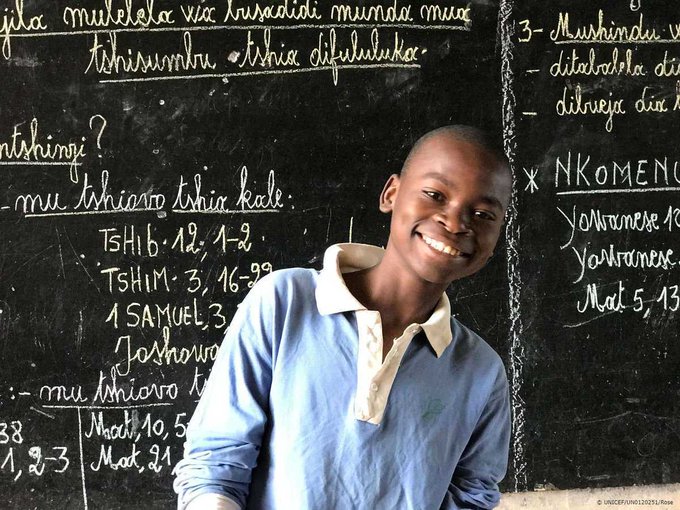 jila mulelela wa busadidi munda mua
tshisumbu tshia difululuka.
ntshinzi?
- mu tshiovo tshia kale:
TSHIB. 12, 1-2.
TSHIM. 3, 16-22
1 SAMUEL, 3,
Joshowa
:- mu tshiovo
38
1, 2-3
Mat, 10, 5
Mat, 21
3- Mushindu
- ditabalela
- dibueja dia
* NKOMENU
Yowanese 10
Yowanese
Mat 5, 13
© UNICEF/UN0120251/Rose